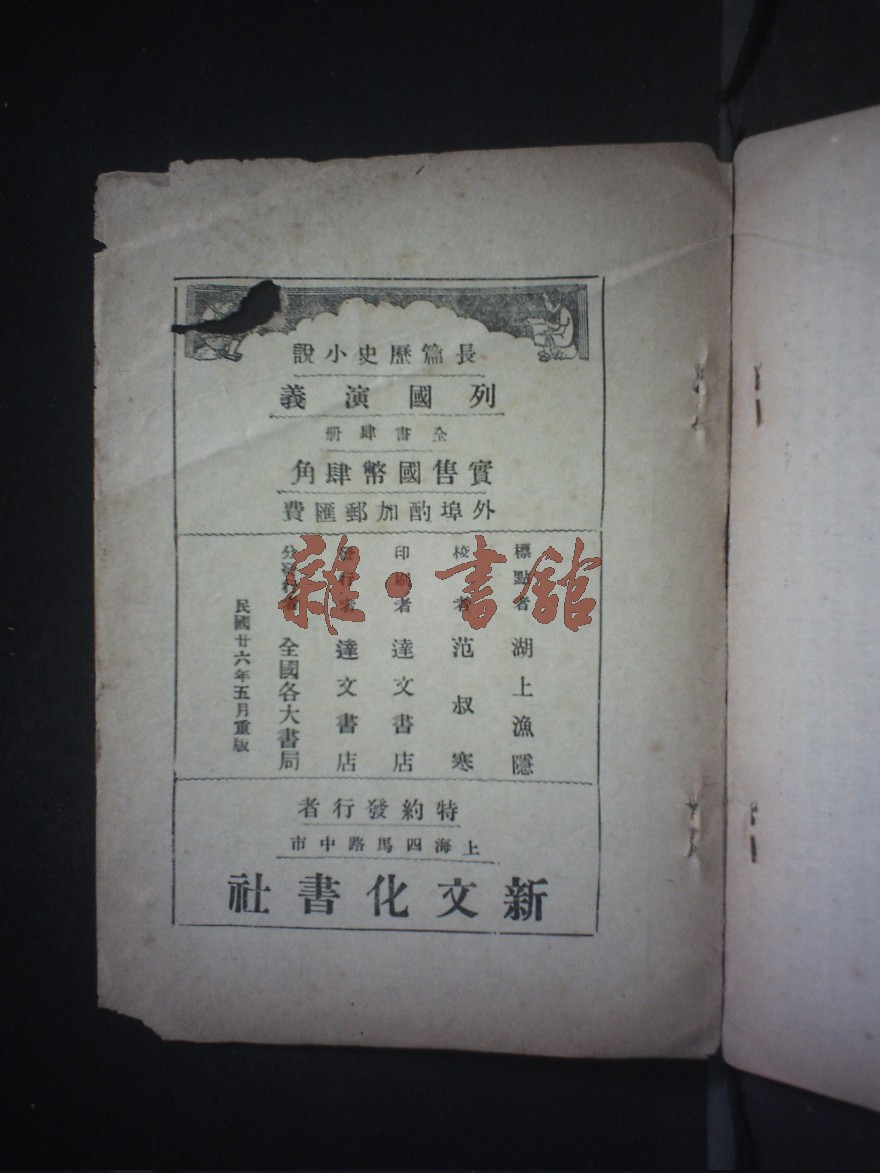 長篇歷史小說
列國演義
全書肆册
實售國幣肆角
外埠酌加郵匯費
標點者 湖上漁隱
校者 范叔寒
印刷者 達文書店
發行者 達文書店
分發行者 全國各大書局
民國廿六年五月重版
特約發行者
上海四馬路中市
新文化書社
雜·書館